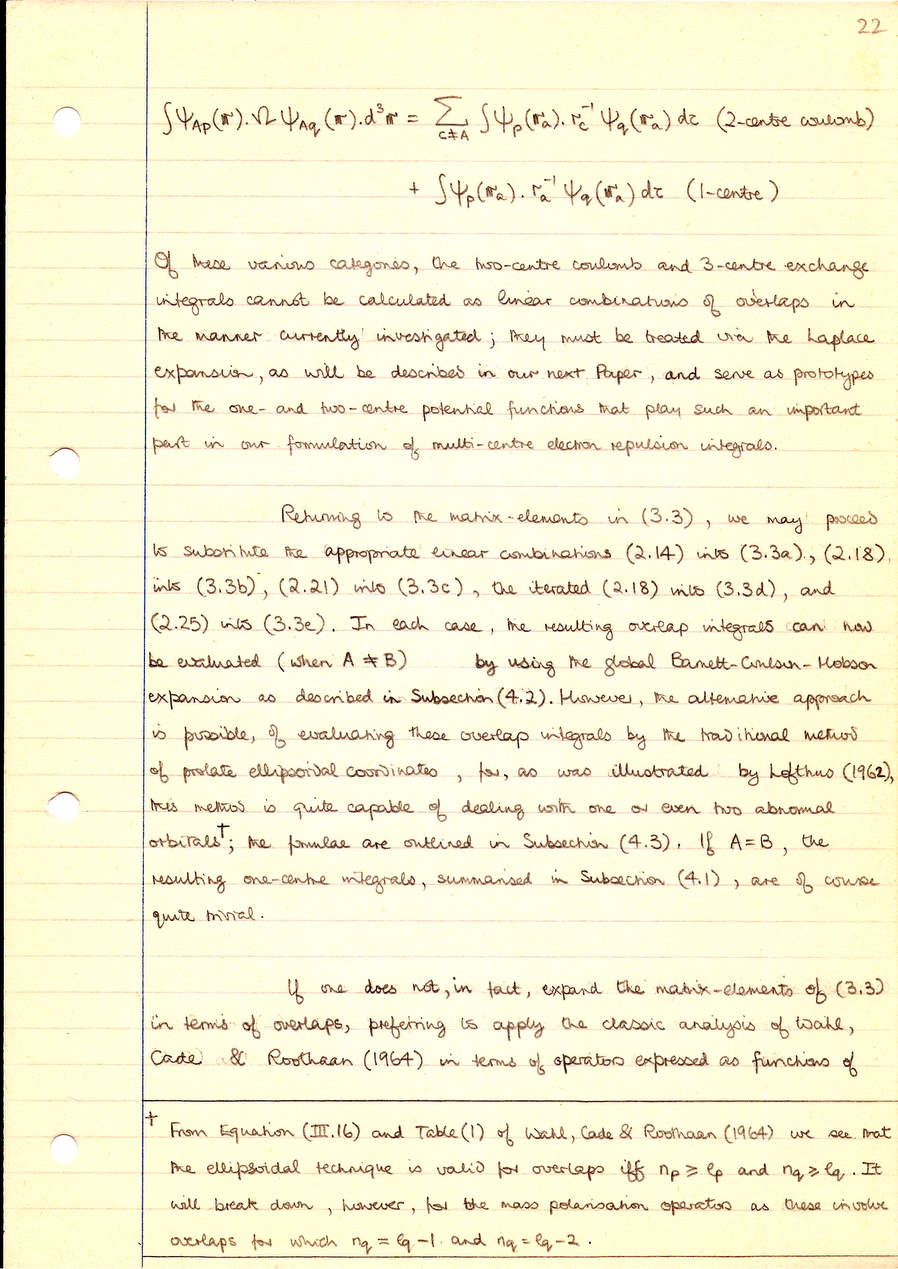 22
∫ψ_Ap(𝐫).Ω ψ_Aq(𝐫).d³𝐫 = Σ_{C≠A} ∫ψ_p(𝐫_a). r_c⁻¹ ψ_q(𝐫_a) dτ (2-centre coulomb)
+ ∫ψ_p(𝐫_a). r_a⁻¹ ψ_q(𝐫_a) dτ (1-centre)
Of these various categories, the two-centre coulomb and 3-centre exchange
integrals cannot be calculated as linear combinations of overlaps in
the manner currently investigated; they must be treated via the Laplace
expansion, as will be described in our next Paper, and serve as prototypes
for the one- and two-centre potential functions that play such an important
part in our formulation of multi-centre electron repulsion integrals.
Returning to the matrix-elements in (3.3), we may proceed
to substitute the appropriate linear combinations (2.14) into (3.3a), (2.18)
into (3.3b), (2.21) into (3.3c), the iterated (2.18) into (3.3d), and
(2.25) into (3.3e). In each case, the resulting overlap integrals can now
be evaluated (when A ≠ B) by using the global Barnett-Coulson-Hobson
expansion as described in Subsection (4.2). However, the alternative approach
is possible, of evaluating these overlap integrals by the traditional method
of prolate ellipsoidal coordinates, for, as was illustrated by Lofthus (1962),
this method is quite capable of dealing with one or even two abnormal
orbitals†; the formulae are outlined in Subsection (4.3). If A = B, the
resulting one-centre integrals, summarised in Subsection (4.1), are of course
quite trivial.
If one does not, in fact, expand the matrix-elements of (3.3)
in terms of overlaps, preferring to apply the classic analysis of Wahl,
Cade & Roothaan (1964) in terms of operators expressed as functions of
† From Equation (III.16) and Table (1) of Wahl, Cade & Roothaan (1964) we see that
the ellipsoidal technique is valid for overlaps iff n_p ⩾ l_p and n_q ⩾ l_q. It
will break down, however, for the mass polarisation operators as these involve
overlaps for which n_q = l_q - 1 and n_q = l_q - 2.